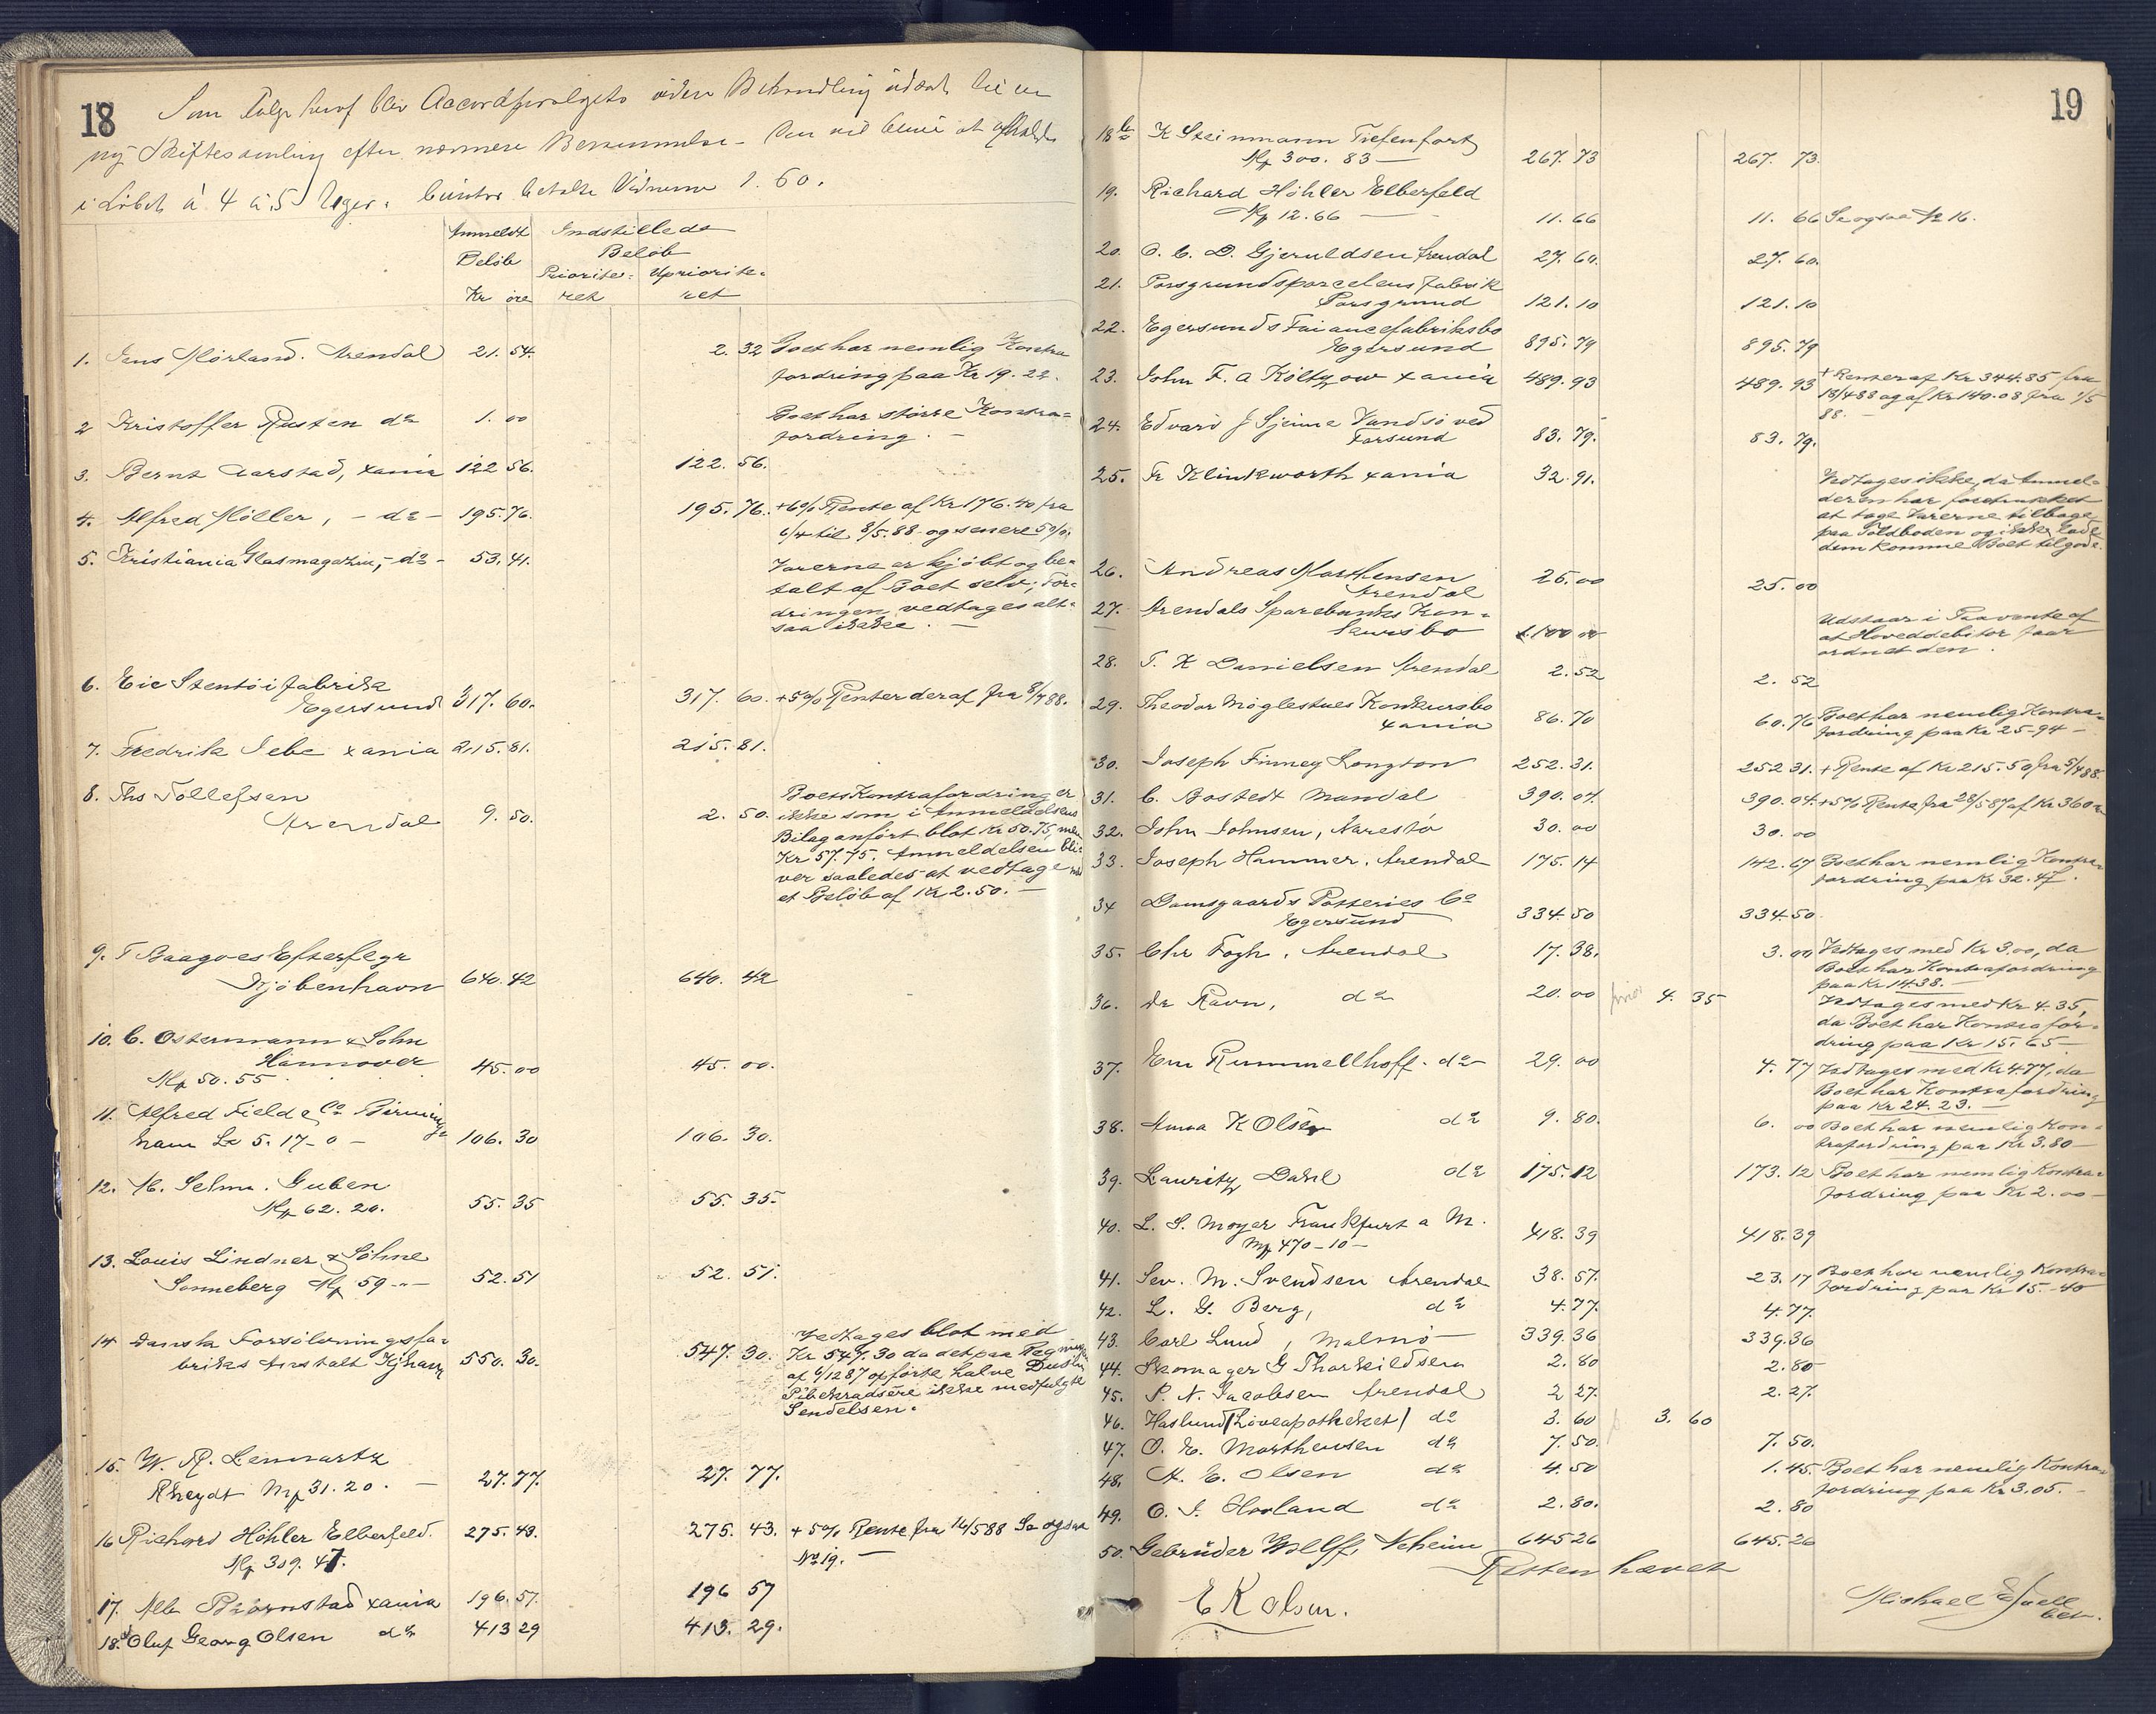 18
Som Følge heraf blev Accordforslagets videre Behandling udsat til en
ny Skiftesamling efter nærmere Bestemmelse. Den vil blive at afholde
i Løbet à 4 à 5 Uger.
betalte Vidnerne 1. 60.
Anmeldt Indstillede
Beløb Beløb
Priorite- Upriorite-
Kr øre ret ret
1. Jens Mørland. Arendal 21. 54. 2. 32 Boet har nemlig Kontra
fordring paa Kr 19. 22.
2 Kristoffer Rusten do 1. 00 Boet har større Kontra-
fordring. —
3. Bernt Aarstad, xania 122 56. 122. 56.
4. Alfred Møller, - do - 195. 76. 195. 76. +6% Rente af Kr 176.40 fra
6/4 til 8/5.88 og senere 5%.
5. Kristiania Glasmagazin, - do - 53. 41. Varerne er kjøbt og be-
talt af Boet selv; For-
dringen vedtages alt-
saa ikke. —
6. Eie Stentøifabrik
Egersund 317. 60. 317. 60. +5% Renter deraf fra 8/4 88.
7. Fredrik Jebe xania 215. 81. 215. 81.
8. Ths Tollefsen
Arendal 9. 50. 2. 50. Boets Kontrafordring er
ikke som i Anmeldelsens
Bilag anført blot Kr 50.75, men
Kr 57.75. Anmeldelsen bli-
ver saaledes at vedtage med
et Beløb af Kr 2.50. —
9. T Baagøes Efterflgr
Kjöbenhavn 640. 42 640. 42
10. C. Ostermann & Sohn
Hannover
Mk 50. 55. 45. 00 45. 00.
11. Alfred Field & Co Birming
ham L 5. 17- 0 - 106. 30 106. 30.
12. M. Selm. Guben
Mk 62. 20. 55. 35 55. 35.
13. Louis Lindner & Söhne
Sonneberg Mk 59 -"- 52. 51 52. 51.
14 Dansk Forsølvningsfa-
briks Anstalt Kjhavn 550. 30. 547. 30. Vedtages blot med
Kr 547.30 da det paa Regning
af 6/12 87 opførte halve Dusin
Pibekradsere ikke medfulgte
Sendelsen.
15. W. R. Lennartz
Rheydt Mk 31. 20. — 27. 77. 27. 77.
16 Richard Höhler Elberfeld. 275. 43. 275. 43. + 5% Rente fra 16/5 88 Se ogsaa
Mk 309. 47. No 19. —
17. Alb Bjørnstad xania 196. 57. 196 57
18.a Oluf Georg Olsen do 413 29 413. 29.
19
18b K Steinmann Tiefenfort
Mk 300. 83 — 267. 73 267. 73.
19. Richard Höhler Elberfeld
Mk 12. 66 — 11. 66 11. 66 Se ogsaa No 16.
20. O. C. D. Gjeruldsen Arendal 27. 60. 27. 60.
21. Porsgrundsporcelensfabrik
Porsgrund 121. 10 121. 10
22. Egersunds Faiancefabriksbo
Egersund 895. 79 895. 79
23. John F. A Költzow xania 489. 93 489. 93 + Renter af Kr 344.85 fra
18/4 88 og af Kr 140.08 fra 1/5
88. —
24. Edvard J Gjeime Vandsø ved
Farsund 83. 79. 83. 79.
25. Fr Klinkworth xania 32. 91. Vedtages ikke, da Anmel-
deren har foretrukket
at tage Varerne tilbage
paa Toldboden og ikke lade
dem komme Boet tilgode.
26. Andreas Morthensen
Arendal 25. 00 25. 00
27. Arendals Sparebanks Kon-
kursbo 1. 100 00 Udstaar i Paavente af
at Hoveddebitor faar
ordnet den.
28. T. K Danielsen Arendal 2. 52 2. 52
29. Theodor Møglestues Konkursbo
xania 86. 70 60. 76 Boet har nemlig Kontra-
fordring paa Kr 25-94 -
30. Joseph Finney Longton 252. 31. 252 31. + Rente af Kr 215.50 fra 5/4 88.
31. C. Bostedt Mandal 390. 04. 390. 04. +5% Rente fra 28/5 87 af Kr 360.
32. John Johnsen, Narestø 30. 00 30. 00
33. Joseph Hammer, Arendal 175. 14 142. 67 Boet har nemlig Kontra-
fordring paa Kr 32.47.
34 Damsgaards Potteries Co
Egersund 334. 50 334. 50.
35. Chr Fogh, Arendal 17. 38. 3. 00 Vedtages med Kr 3.00, da
Boet har Kontrafordring
paa Kr 14.38. —
36. Dr Ravn, do 20. 00 prior 4. 35 Vedtages med Kr 4.35,
da Boet har Kontrafor-
dring paa Kr 15. 65 —
37. Em Rummelhoff. do 29. 00 4. 77 Vedtages med Kr 4.77, da
Boet har Kontrafordring
paa Kr 24. 23. —
38. Anna K Olsen do 9. 80. 6. 00 Boet har nemlig Kon-
trafordring paa Kr 3.80 -
39. Lauritz Dahl do 175. 12 173. 12 Boet har nemlig Kontra-
fordring paa Kr 2.00 -
40. L. S. Mayer Frankfurt a M.
Mk 470-10 - 418. 39 418. 39
41. Sev. M. Svendsen Arendal 38. 57. 23. 17 Boet har nemlig Kontra-
fordring paa Kr 15.-40
42. L. G. Berg, do 4. 77. 4. 77.
43. Carl Lund, Malmö — 339. 36 339. 36
44. Skomager G Tharkildsen 2. 80 2. 80
45. P. N. Jacobsen Arendal 2 27. 2. 27.
46. Haslund (Løveapotheket) do 3. 60 p 3. 60
47. O. E. Morthensen do 7. 50. 7. 50.
48. A. E. Olsen do 4. 50 1. 45. Boet har nemlig Kontra-
fordring paa Kr 3.05. —
49. O. J. Hovland do 2. 80. 2. 80
50. Gebrüder Wolff, Neheim 645 26 645. 26
Retten hævet
E K Olsen.
Michael